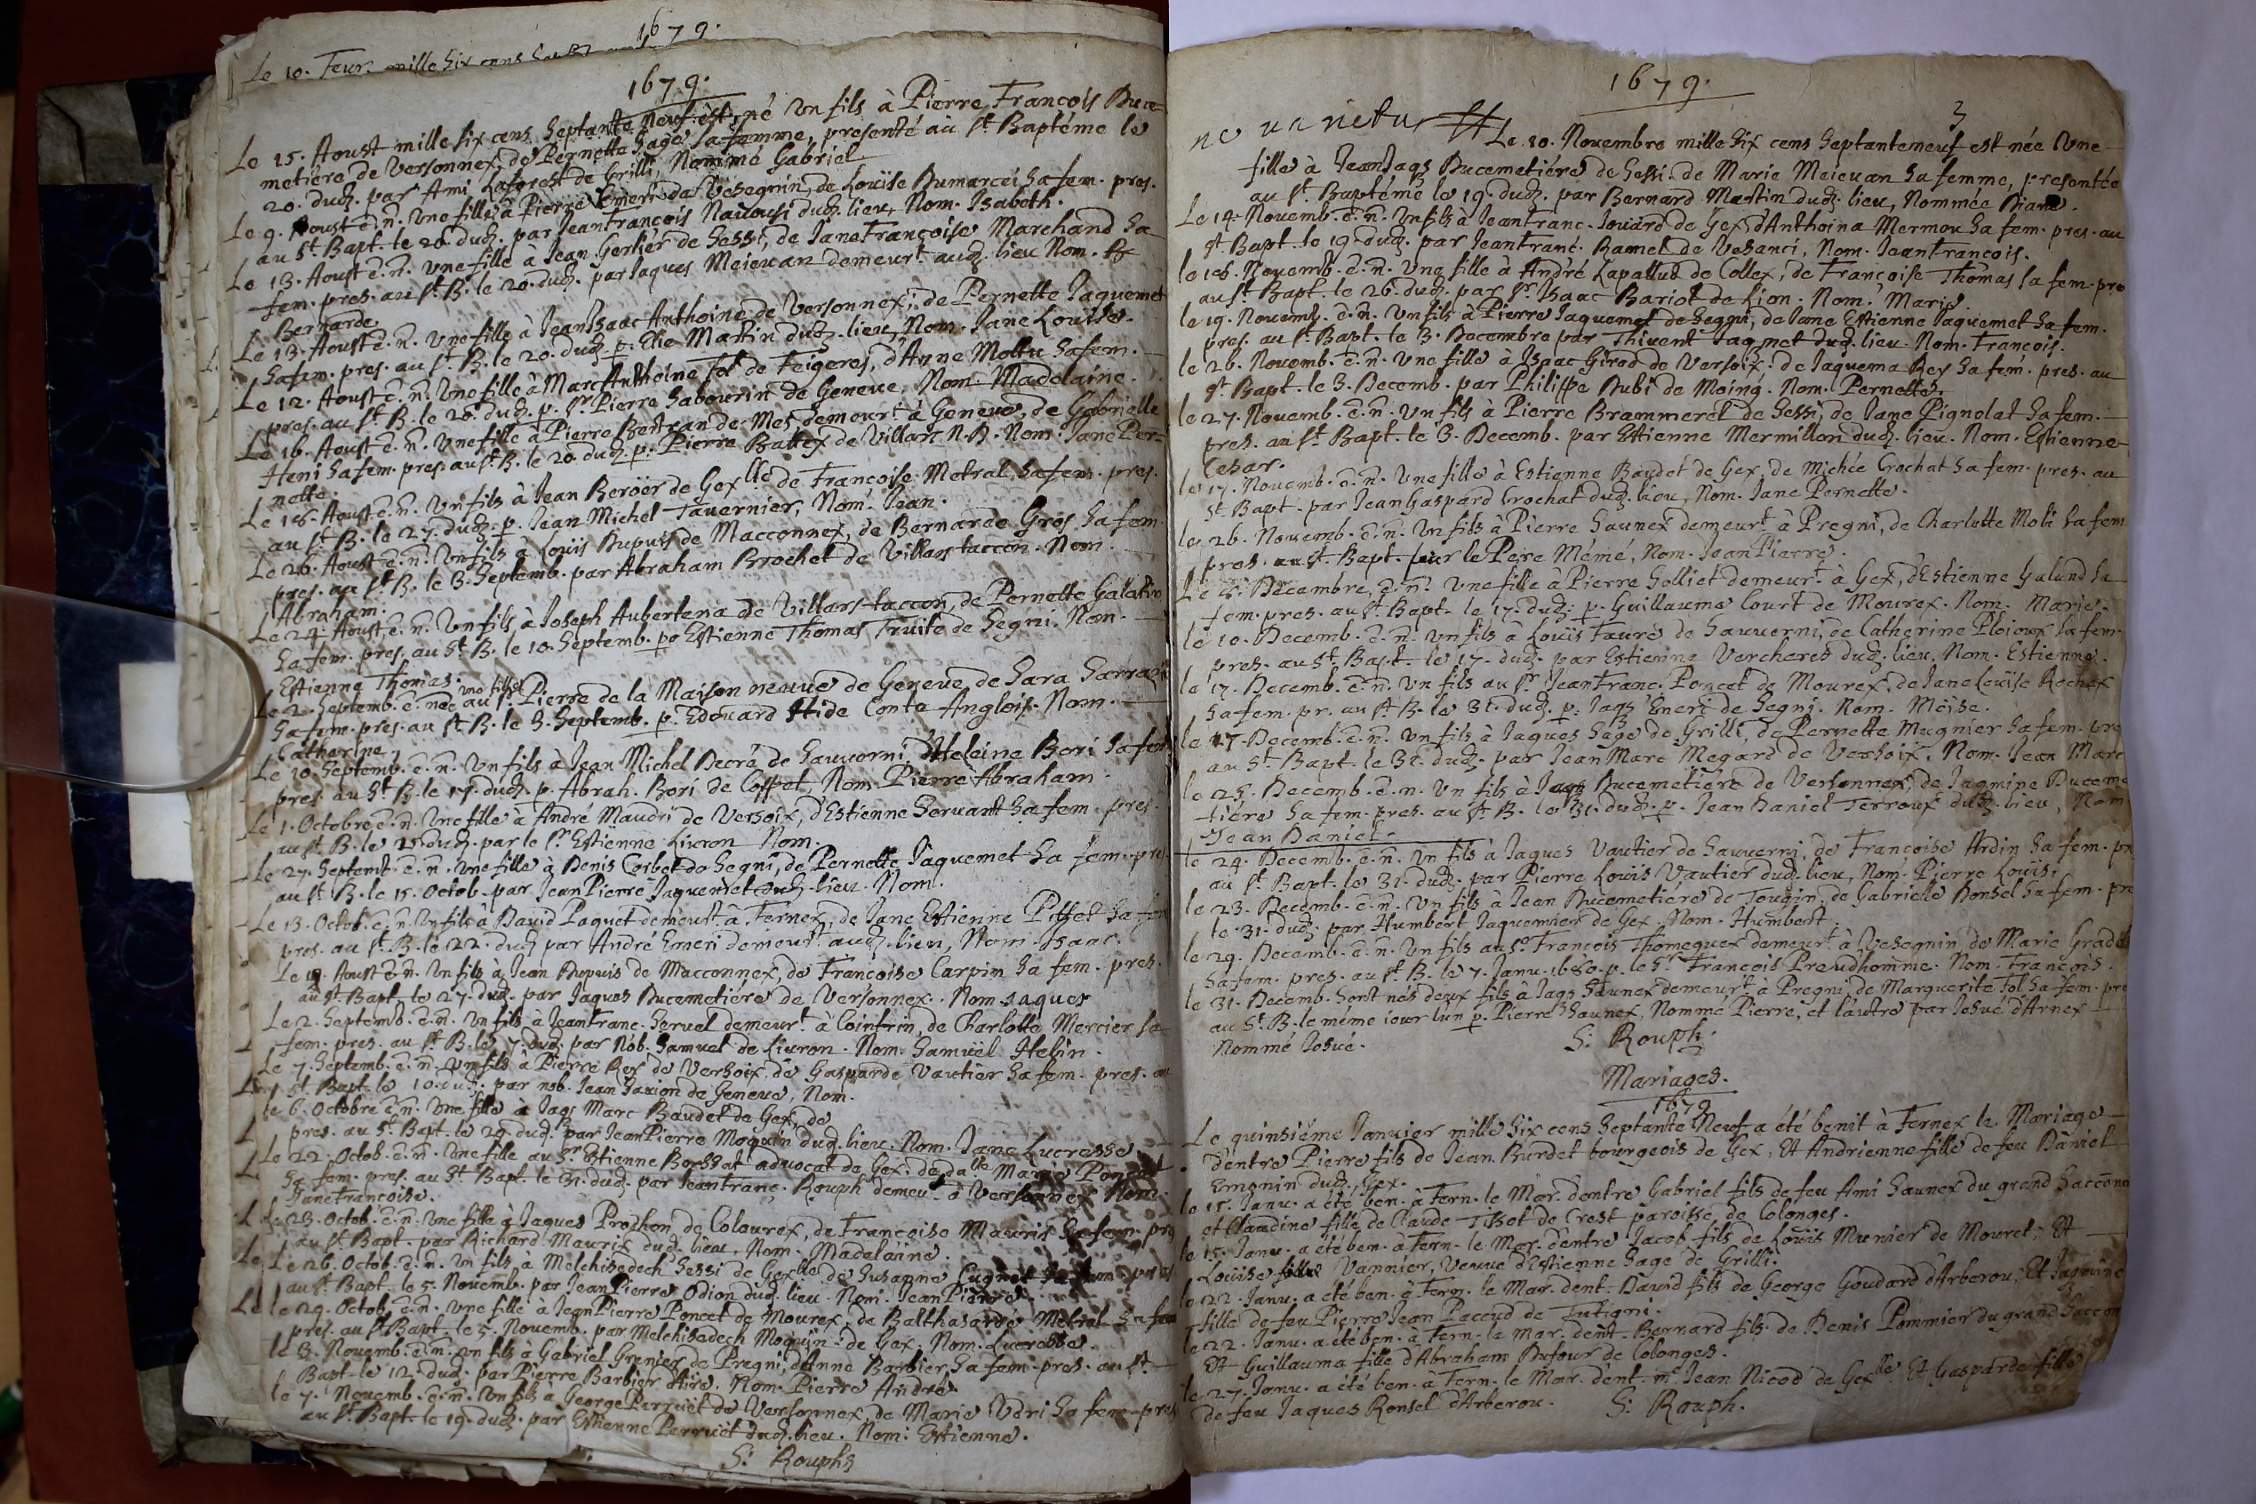 1679.
Le 10. Feur. mille six cens
1679.
Le 15. Aoust mille six cens septante neuf est né Vn fils à Pierre François Duce-
metiere de Versonnex, de Pernette Sage sa femme, presenté au St. Baptéme le
20. dud. par Ami Laforest de Grilli, Nommé Gabriel
Le 9. Aoust e. n. Vne fille à Pierre Emeri de Vesegnin, de Louïse Dumarcei sa fem. pres.
au St. Bapt. le 20. dud. par Jean François Nauoisi dud. lieu, Nom. Isabeth.
Le 13. Aoust e. n. Vne fille à Jean Gerlier de Sessi, de Jane Françoise Marchand sa
fem. pres. au St. B. le 20. dud. par Jaques Meieuan demeurt. aud. lieu Nom.
Bernarde.
Le 13. Aoust e. n. Vne fille à Jean Isaac Anthoine de Versonnex, de Pernette Jaquemet
sa fem. pres. au St. B. le 20. dud. p. Elie Martin dud. lieu, Nom. Jane Louïse.
Le 12. Aoust e. n. Vne fille à Marc Anthoine Sol de Feigeres, d'Anne Mottu sa fem.
pres. au St. B. le 20. dud. p. Sr. Pierre Sabourin de Geneue, Nom. Madelaine.
Le 16. Aoust e. n. Vne fille à Pierre Bertran de Mes demeurt. à Geneue, de Gabrielle
Heni sa fem. pres. au St. B. le 20 dud. p. Pierre Battex de Villars N. D. Nom. Jane Per-
nette.
Le 16. Aoust e. n. Vn fils à Jean Beroër de Gex lle de Françoise Metral sa fem. pres.
au St. B. le 27. dud. p. Jean Michel Tauernier, Nom. Jean.
Le 26. Aoust e. n. Vn fils à Loüis Dupuis de Macconnex, de Bernarde Gros sa fem.
pres. au St. B. le 3. Septemb. par Abraham Brochet de Villars taccon. Nom.
Abraham.
Le 24. Aoust e. n. Vn fils à Joseph Aubertena de Villars-taccon, de Pernette Gallatin
sa fem. pres. au St. B. le 10. Septemb. p Estienne Thomas Truite de Segni. Nom.
Estienne Thomas.
Le 2. Septemb. e. née vne fille au Sr. Pierre de la Maison neuue de Geneue, de Sara Sarrazi
sa fem. pres. au St. B. le 3. Septemb. p. Edoüard Hide Conte Anglois. Nom.
Catherine.
Le 10. Septemb. e. n. Vn fils à Jean Michel Decré de Sauuerni, d'Heleine Bori sa fem.
pres. au St. B. le 17. dud. p. Abrah. Bori de Coppet, Nom. Pierre Abraham.
Le 1. Octobre e. n. Vne fille à André Maudri de Versoix, d'Estienne Seruant sa fem. pres.
au St. B. le dud. par le Sr. Estienne Liuron Nom.
Le 27. Septemb. e. n. Vne fille à Denis Corbet de Segni, de Pernette Jaquemet sa fem. pres.
au St. B. le 15. Octob. par Jean Pierre Jaquemet dud. lieu. Nom.
Le 13. Octob. e. n. Vn fils à Dauid Paquet demeurt. à Fernex, de Jane Estienne Poffet sa fem
pres. au St. B. le 22. dud par André Emeri demeurt. aud. lieu, Nom. Isaac.
Le Aoust e. n. Vn fils à Jean Dupuis de Macconnex, de Françoise Carpin sa fem. pres.
au St. Bapt. le 27. dud. par Jaques Ducemetiére de Versonnex. Nom Jaques
Le 2. Septemb. e. n. Vn fils à Jean Franc. Seruel demeurt. à Cointrin, de Charlotte Mercier sa
fem. pres. au St. B. le 7. dud. par Nob. Samuel de Liuron. Nom. Samuël Helin.
Le 7. Septemb. e. n. Vn fils à Pierre Rey de Versoix, de Gasparde Vautier sa fem. pres. au
St. Bapt. le 10. dud. par nob. Jean Sarion de Geneue, Nom.
le 6. Octobre e. n. Vne fille à Jaqs Marc Baudet de Gex, de
pres. au St. Bapt. le 29. dud. par Jean Pierre Moquin dud. lieu. Nom. Jane Lucresse
Le 22. Octob. e. n. Vne fille au Sr. Estienne Borssat aduocat de Gex, de dalle Marie Poncet
sa fem. pres. au St. Bapt. le 31. dud. par Jean Franc. Rouph demeu. à Versonnex Nom.
Jane Françoise.
Le 23. Octob. e. n. Vne fille à Jaques Prothon de Colourex, de Françoise Mauris sa fem. pre
au St. Bapt. par Richard Mauris dud. lieu, Nom. Madelanne.
Le 26. Octob. e. n. Vn fils à Melchisedech Sessi de Gex lle de Susanne Cugnet sa fem. pres.
au St. Bapt. le 5. Nouemb. par Jean Pierre Odion dud. lieu. Nom. Jean Pierre.
le 29. Octob. e. n. Vne fille à Jean Pierre Poncet de Mourex, de Balthasarde Metral sa fem
pres. au St. Bapt. le 5. Nouemb. par Melchisedech Moquin de Gex. Nom. Lucresse.
le 3. Nouemb. e. n. Vn fils à Gabriel Grenier de Pregni, d'Anne Barbier sa fem. pres. au St.
Bapt. le 12. dud. par Pierre Barbier d'Aïre. Nom. Pierre André.
le 7. Nouemb. e. n. Vn fils à George Perruët de Versonnex, de Marie Vdri sa fem. pres
au St. Bapt. le 19. dud. par Estienne Perruët dud. lieu. Nom. Estienne.
S: Rouph
1679.
3
ne varietur
Le 10. Nouembre mille six cens septanteneuf est née Vne
fille à Jean Jaqs Ducemetiére de Sessi, de Marie Meieuan sa femme, presentée
au St. Baptéme le 19. dud. par Bernard Martin dud. lieu, Nommée Diane.
Le 14. Nouemb. e. n. Vn fils à Jean Franc. Jouard de Gex, d'Anthoina Mermou sa fem. pres. au
St Bapt. le 19. dud. par Jean Franc. Ramel de Vesanci, Nom. Jean François.
le 16. Nouemb. e. n. Vne fille à André Lapallud de Collex, de Françoise Thomas sa fem. pre
au St. Bapt. le 26. dud. par Sr. Isaac Bariot de Lion. Nom. Marie.
le 19. Nouemb. e. n. Vn fils à Pierre Jaquemet de Seggni, de Jane Estienne Jaquemet sa fem.
pres. au St. Bapt. le 3. Decembre par Thiuent Jaqmet dud. lieu. Nom. François.
le 26. Nouemb. e. n. Vne fille à Isaac Girod de Versoix, de Jaquema Rey sa fem. pres. au
St. Bapt. le 3. Decemb. par Philippe Dubi de Moing. Nom. Pernette.
le 27. Nouemb. e. n. Vn fils à Pierre Brammerel de Sessi, de Jane Pignolat sa fem.
pres. au St. Bapt. le 3. Decemb. par Estienne Mermillon dud. lieu. Nom. Estienne
Cesar.
le 17. Nouemb. e. n. Vne fille à Estienne Baudet de Gex, de Michée Crochat sa fem. pres. au
St Bapt. par Jean Gaspard Crochat dud. lieu, Nom. Jane Pernette.
le 26. Nouemb. e. n. Vn fils à Pierre Saunex demeurt. à Pregni, de Charlotte Moli sa fem
pres. au St. Bapt. par le Pere Mémé, Nom. Jean Pierre.
Le 3. Décembre, e. n. Vne fille à Pierre Solliet demeurt. à Gex, d'Estienne Galand sa
fem. pres. au St. Bapt. le 17. dud. p. Guillaume Court de Mourex. Nom. Marie.
le 10. Decemb. e. n. Vn fils à Louis Fauré de Sauuerni, de Catherine Ploioux sa fem.
pres. au St. Bapt. le 17. dud. par Estienne Vercheres dud. lieu. Nom. Estienne.
le 17. Decemb. e. n. Vn fils au Sr Jean Franc. Poncet de Mourex, de Jane Louïse Rochex
sa fem. pr. au St. B. le 31. dud. p. Jaqs Emeri de Segni. Nom. Moïse.
le 17. Decemb. e. n. Vn fils à Jaques Sage de Grilli, de Pernette Mugnier sa fem. pre
au St. Bapt. le 31. dud. par Jean Marc Megard de Versoix, Nom. Jean Marc
le 25. Decemb. e. n. Vn fils à Jaqs Ducemetiére de Versonnex, de Jaqmine Duceme
tiére sa fem. pres. au St. B. le 31. dud. p. Jean Daniel Terroux dud. lieu, Nom.
Jean Daniel.
le 24. Decemb. e. n. Vn fils à Jaques Vautier de Sauuerni, de Françoise Ardin sa fem. pr
au St. Bapt. le 31. dud. par Pierre Louis Vautier dud. lieu, Nom. Pierre Louïs.
le 23. Decemb. e. n. Vn fils à Jean Ducemetiére de Tougin, de Gabrielle Ronsel sa fem. pre
le 31. dud. par Humbert Jaquemier de Gex. Nom. Humbert.
le 29. Decemb. e. n. Vn fils au Sr. François Thomeguex demeurt à Vesegnin, de Marie Gradel
sa fem. pres. au St. B. le 7. Janu. 1680. p. le Sr François Preudhomme. Nom. François.
le 31. Decemb. sont nés deux fils à Jaqs Saunex demeurt. à Pregni, de Marguerite Sol sa fem. pre
au St. B. le méme iour l'un p. Pierre Saunex, Nommé Pierre, et l'autre par Josué d'Arnex
Nommé Josué.
S: Rouph.
Mariages.
1679
Le quinsiéme Januier mille six cens septante Neuf a été benit à Fernex le Mariage
d'entre Pierre fils de Jean Burdet bourgeois de Gex, Et Andrienne fille de feu Daniel
Emonin dud. Gex.
le 15. Janu. a été ben. à Fern. le Mar. d'entre Gabriel fils de feu Ami Saunex du grand Saccone
et Claudine fille de Claude Tissot de Crest paroisse de Colonges.
le 15. Janu. a été ben. à Fern. le Mar. d'entre Jacob fils de Loüis Munier de Mouret, Et
Loüise Vannier, Veuue d'Estienne Sage de Grilli.
le 22. Janu. a été ben. à Fern. le Mar. d'ent. Dauid fils de George Goudard d'Arberou, Et Jaqmine
fille de feu Pierre Jean Paccud de Tutigni.
le 22. Janu. a été ben. à Fern. le Mar. d'ent. Bernard fils de Denis Pommier du grand Saccon
Et Guillauma fille d'Abraham Dufour de Colonges.
le 27. Janu. a été ben. à Fern. le Mar. d'ent. Me Jean Nicod de Gex lle Et Gasparde fille
de feu Jaques Ronsel d'Arberou.
S: Rouph.